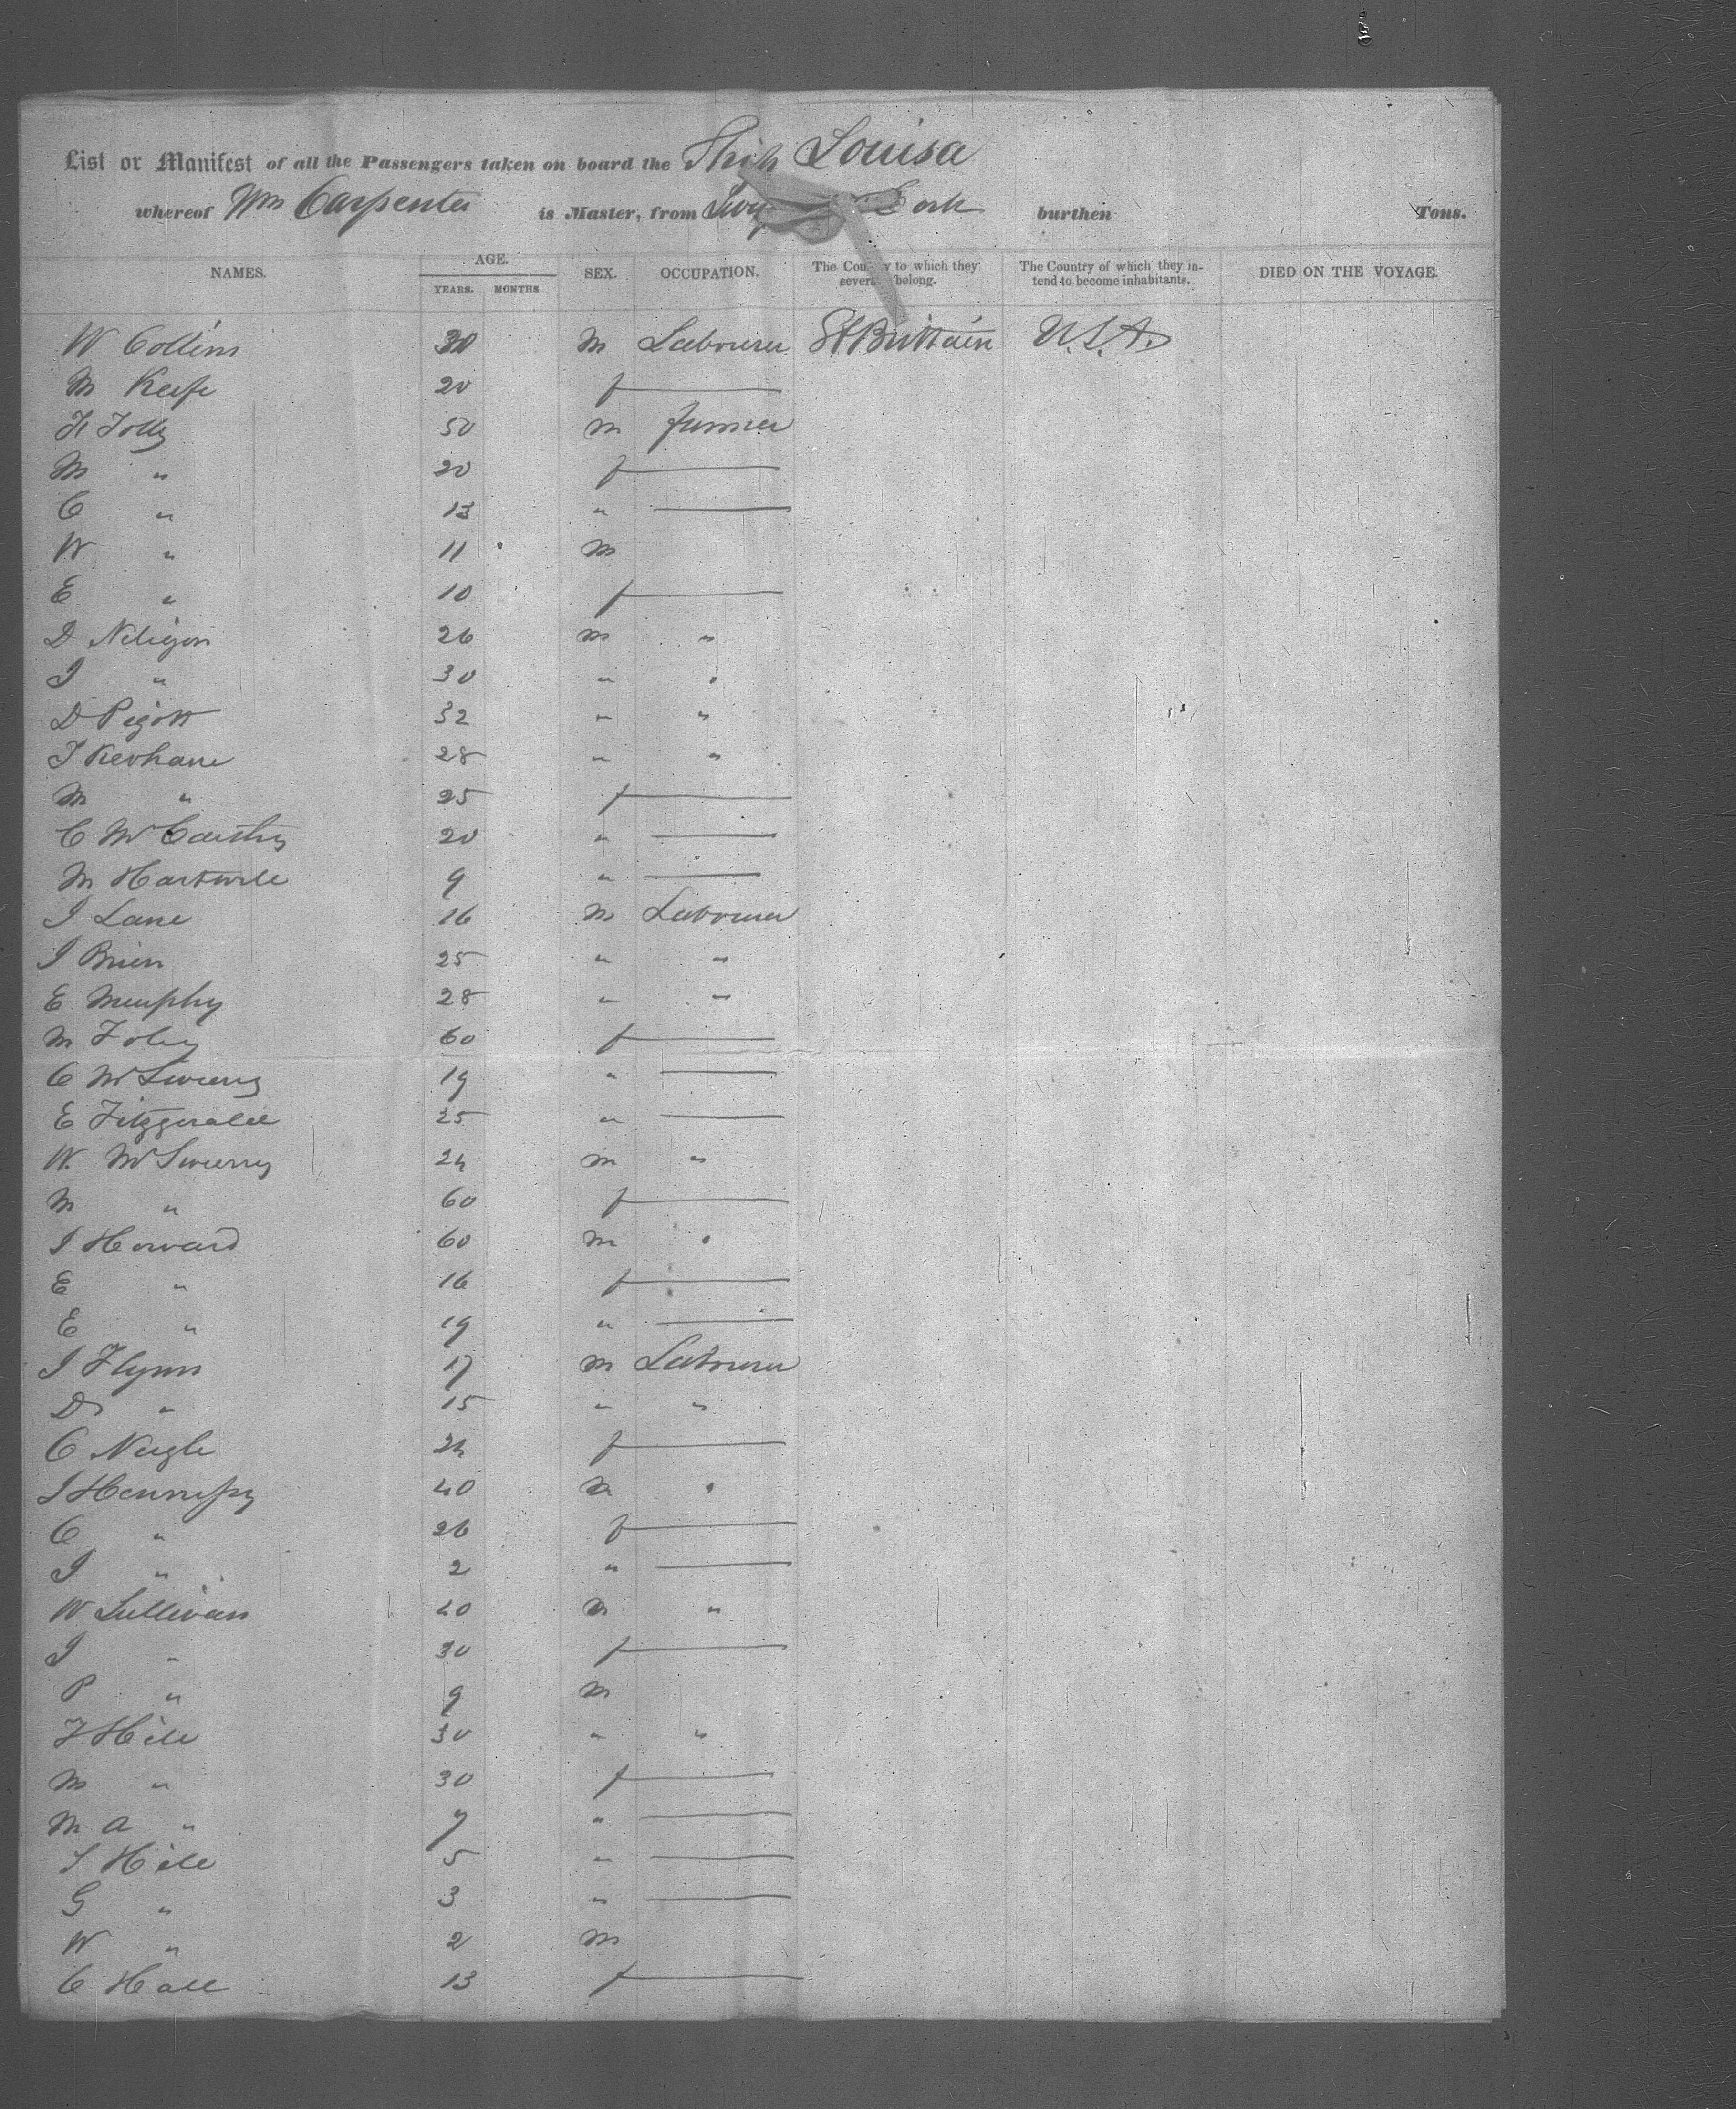 List or Manifest of all the Passengers taken on board the Ship Louisa
whereof Wm Carpenter is Master, from Cork burthen Tons.
NAMES. AGE. SEX. OCCUPATION. The Country to which they The Country of which they in- DIED ON THE VOYAGE.
YEARS. MONTHS belong. tend to become inhabitants.
W Collins 30 m Labourer Gt Brittain U.S.A.
M Keefe 20 f
50 m farmer
M " 20 f
C " 13 "
W " 11 m
E " 10 f
D Neligon 26 m "
J " 30 " "
D Pigott 32 " "
J Keohane 28 " "
M " 25 f
C McCarthy 20 "
M Hartwell 9 "
J Lane 16 m Labourer
J Brien 25 " "
E Murphy 28 " "
M Foley 60 f
C McSweeny 19 "
E Fitzgerald 25 "
W. McSweeny 24 m "
M " 60 f
J Howard 60 m "
E " 16 f
E " 19 "
J Flynn 17 m Labourer
D " 15 " "
C Neagle 24 f
J Hennessy 40 m "
C " 26 f
J " 2 "
W Sullivan 40 m "
J " 30 f
P " 9 m
J Hill 30 " "
M " 30 f
M A " 7 "
S Hill 5 "
G " 3 "
W " 2 m
C Hall 13 f